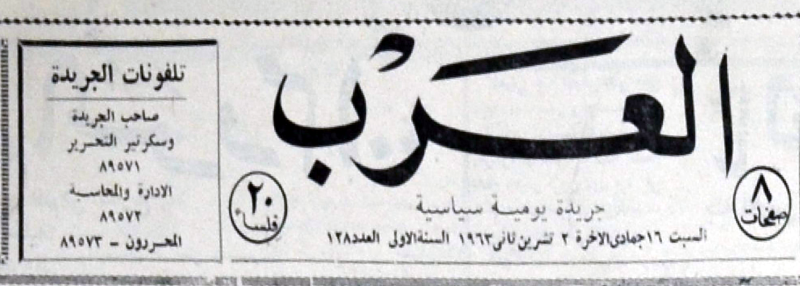 العرب
٨ صفحات
٢٠ فلسا
جريدة يومية سياسية
السبت ١٦ جمادى الاخرة ٢ تشرين ثانى ١٩٦٣ السنة الاولى العدد ١٢٨
تلفونات الجريدة
صاحب الجريدة
وسكرتير التحرير
٨٩٥٧١
الادارة والمحاسبة
٨٩٥٧٢
المحررون - ٨٩٥٧٣